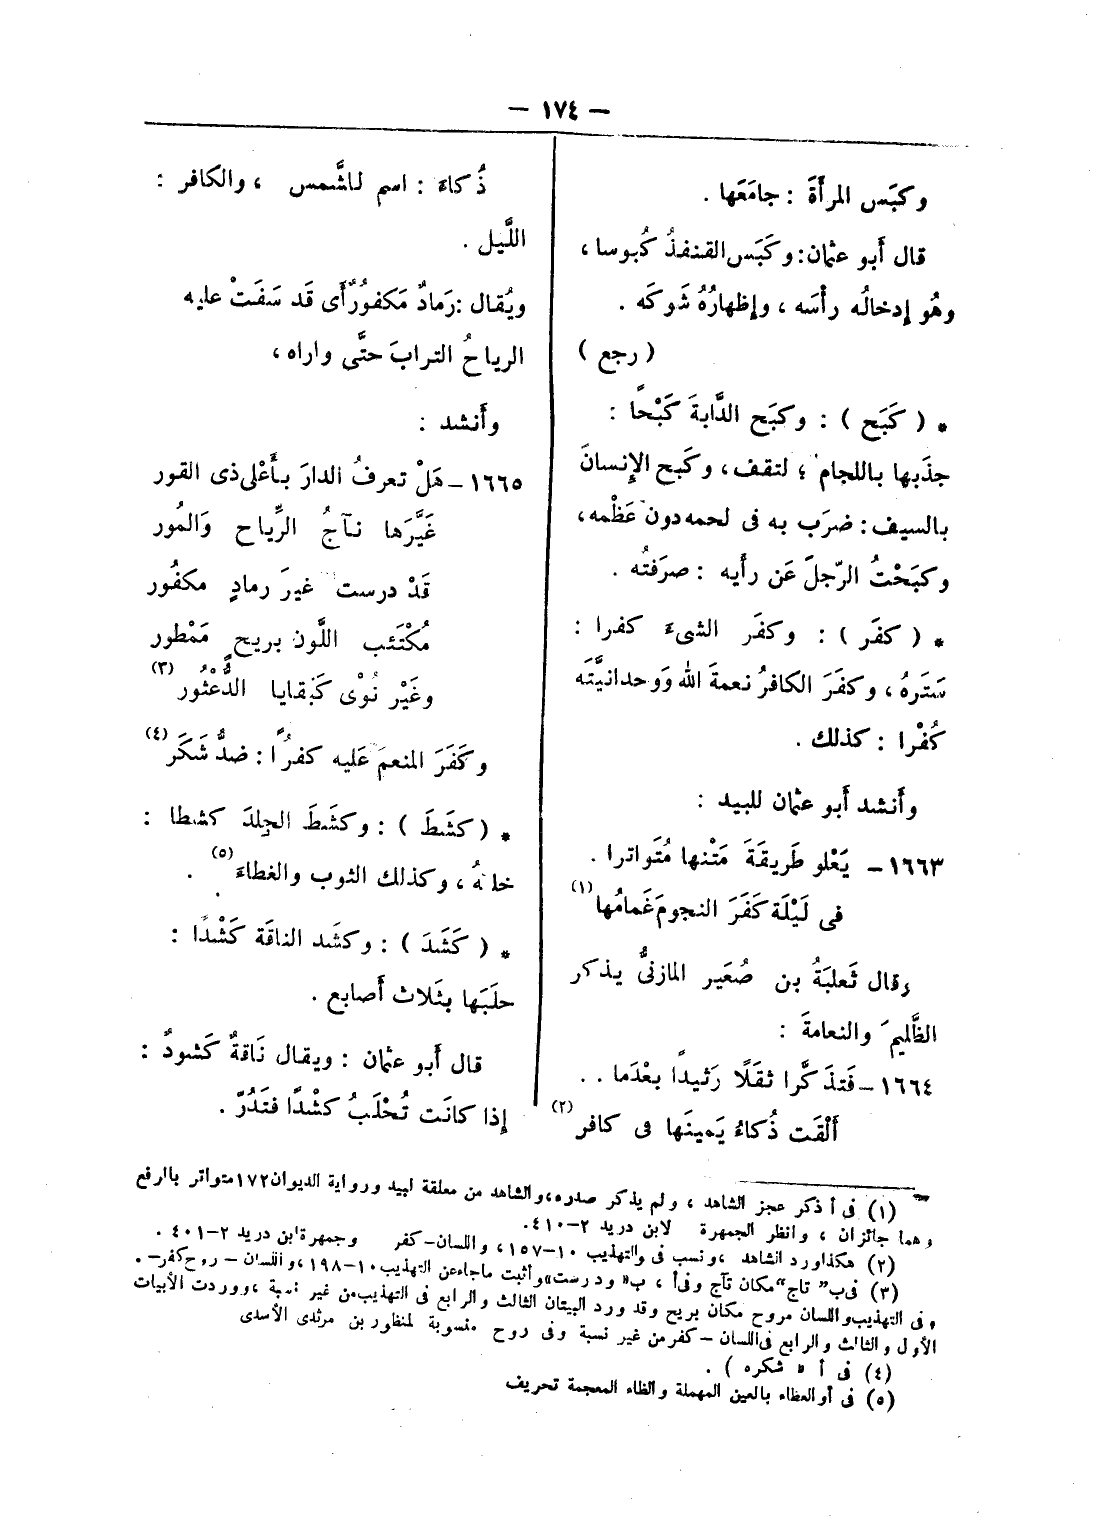 — ١٧٤ —
وكبَس المرأَةَ : جامَعَها .
قال أَبو عثمان : وكَبَس القنفذُ كُبوسا ،
وهُو إِدخالُه رأْسَه ، وإِظهارُهُ شَوكَه .
( رجع )
* ( كَبَح ) : وكبَح الدَّابةَ كَبْحًا :
جذَبها باللجام ؛ لتقف ، وكَبح الإِنسانَ
بالسيف : ضرَب به فى لحمه دون عَظْمه ،
وكبَحْتُ الرّجلَ عَن رأْيه : صرَفتُه .
* ( كفَر ) : وكفَر الشىءَ كفرا :
سَتَرهُ ، وكفَرَ الكافرُ نعمةَ الله وَوحدانيَّتَه
كُفْرا : كذلك .
وأَنشد أَبو عثمان للبيد :
١٦٦٣ – يَعْلو طَريقَةَ مَتْنها مُتَواترا .
فى لَيْلَة كَفَرَ النجومَ غَمامُها (١)
وقال ثَعلبَةُ بن صُعَير المازنىُّ يذكر
الظَّليمَ والنعامةَ :
١٦٦٤ – فَتذكَّرا ثقَلًا رَثيداً بعْدَما . .
أَلْقَت ذُكاءُ يَمينَها فى كافر (٢)
ذُكاءَ : اسم لاشَّمس ، والكافر :
اللَّيل .
ويُقال : رَمادٌ مَكفورٌ أَى قَد سَفَتْ عليه
الرياحُ الترابَ حتَّى واراه ،
وأَنشد :
١٦٦٥ – هَلْ تعرفُ الدارَ بأَعْلى ذى القور
غَيَّرَها نآجُ الرِّياح وَالمُور
قَدْ درست غيرَ رمادٍ مكفُور
مُكْتَئب اللَّون بريحٍ مَمْطور
وغَيْر نُؤْى كَبَقايا الدُّعْثُور (٣)
وكَفَرَ المنعمَ عَليه كفرًا : ضدُّ شَكَر (٤)
* ( كشَطَ ) : وكشَطَ الجِلدَ كشطا :
خلعهُ ، وكذلك الثوب والغطاءَ (٥) .
* ( كَشَدَ ) : وكشَد الناقَة كَشْدًا :
حلَبَها بثَلاث أَصابع .
قال أَبو عثمان : ويقال نَاقةٌ كَشودٌ :
إذا كانَت تُحْلَبُ كشْدًا فتَدُرّ .
(١) فى أ ذكر عجز الشاهد ، ولم يذكر صدره ، والشاهد من معلقة لبيد ورواية الديوان ١٧٢ متواتر بالرفع
وهما جائزان ، وانظر الجمهرة لابن دريد ٢–٤١٠.
(٢) هكذا ورد الشاهد ، ونسب فى والتهذيب ١٠–١٥٧ ، واللسان – كفر وجمهرة ابن دريد ٢–٤٠١ .
(٣) فى ب " تاج " مكان تآج وفى أ ، ب « ودرست » وأثبت ماجاء عن التهذيب ١٠–١٩٨ ، واللسان – روح كفر – .
وفى التهذيب واللسان مروح مكان بريح وقد ورد البيتان الثالث والرابع فى التهذيب من غير نسبة ، ووردت الأبيات
الأول والثالث والرابع فى اللسان – كفر من غير نسبة وفى روح منسوبة لمنظور بن مرثدى الأسدى
(٤) فى أ « شكره ) .
(٥) فى أو العظاء بالعين المهملة والظاء المعجمة تحريف